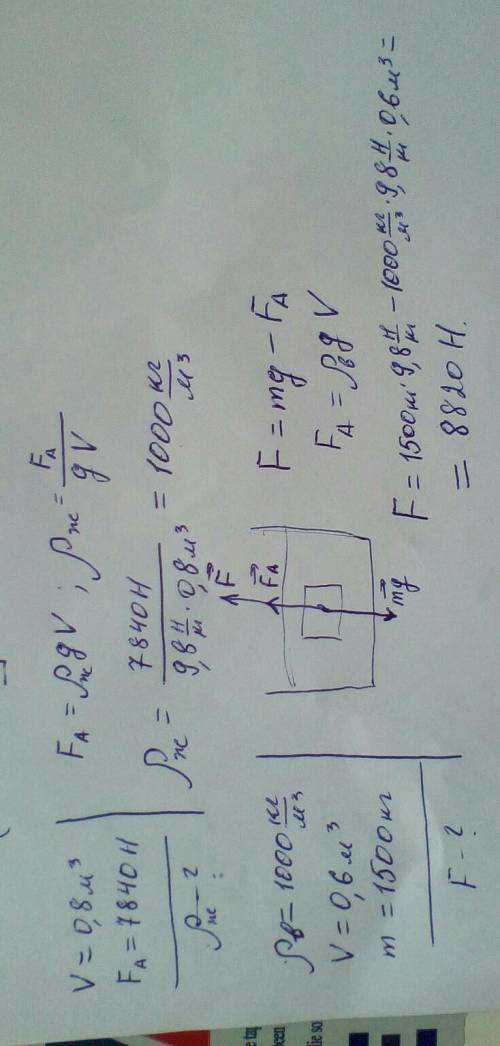 V = 0,8 м³
F_A = 7840 Н
ρ_ж - ?
F_A = ρ_ж g V ; ρ_ж = F_A / gV
ρ_ж = 7840 Н / 9,8 Н/кг · 0,8 м³ = 1000 кг/м³
ρ_в = 1000 кг/м³
V = 0,6 м³
m = 1500 кг
F - ?
F
F_A
mg
F = mg - F_A
F_A = ρ_в g V
F = 1500 кг · 9,8 Н/кг - 1000 кг/м³ · 9,8 Н/кг · 0,6 м³ =
= 8820 Н.